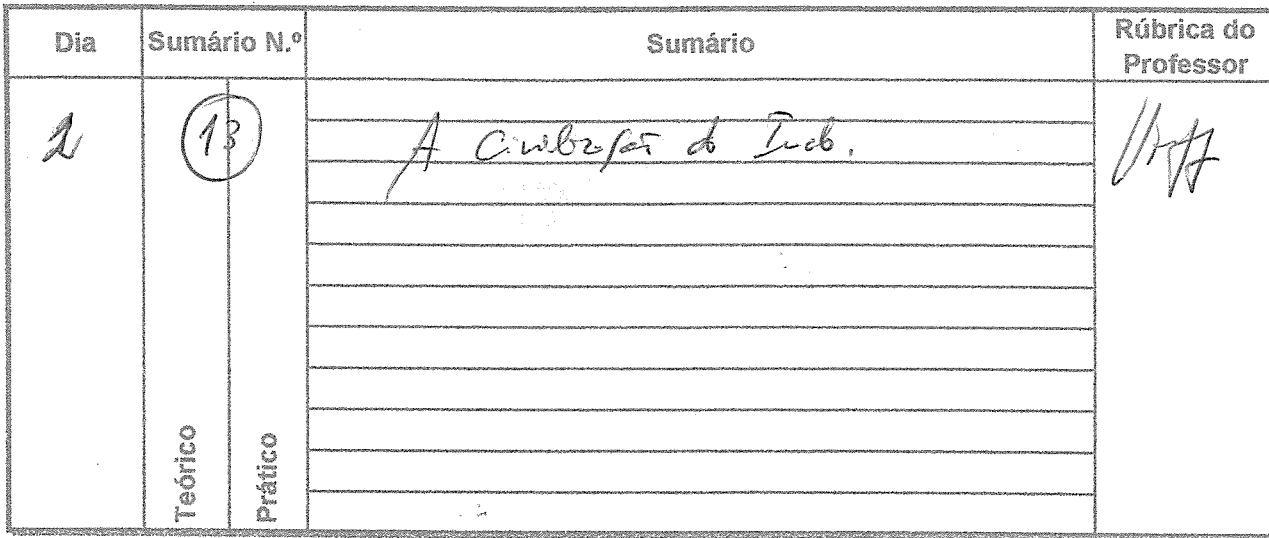 Dia Sumário N.º Sumário Rúbrica do Professor
2 13 A Civilização do Indo.
Teórico Prático